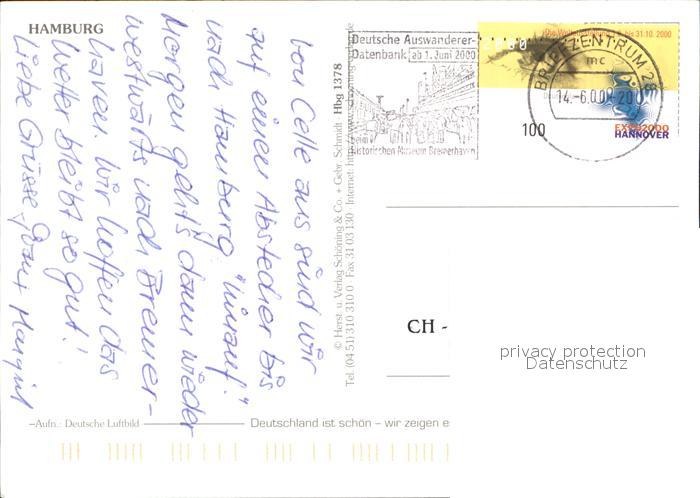 HAMBURG
Von Celle aus sind wir
auf einen Abstecher bis
nach Hamburg "hinauf".
Morgen geht's dann wieder
westwärts nach Bremer-
haven. Wir hoffen das
Wetter bleibt so gut!
Liebe Grüsse, Margrit
Aufn.: Deutsche Luftbild
Deutschland ist schön – wir zeigen e
© Herst. u. Verlag Schöning & Co. + Gebr. Schmidt · Hbg 1378
Tel. (04 51) 310 310 0 · Fax 31 03 130 · Internet: http://www.
Deutsche Auswanderer-
Datenbank ab 1. Juni 2000
beim
Historischen Museum Bremerhaven
bis 31.10. 2000
2000
BRIEFZENTRUM 28
mc
14.-6.00-20
100
EXPO2000
HANNOVER
CH -
privacy protection
Datenschutz